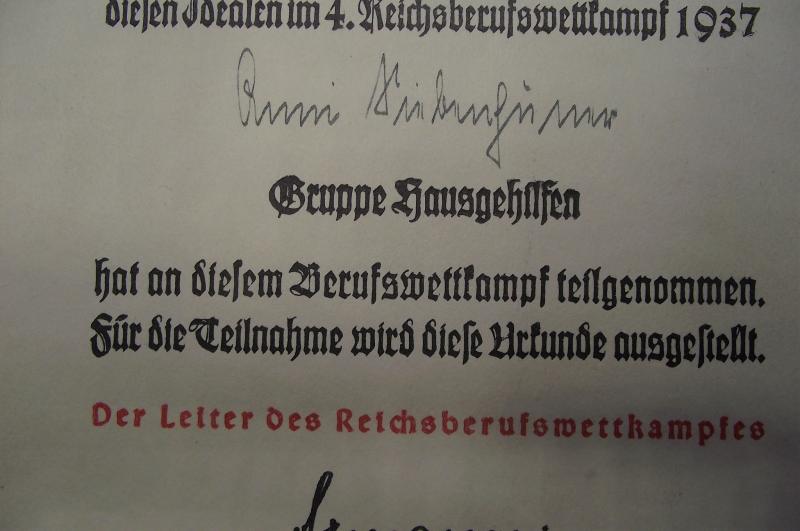 diesen Idealen im 4. Reichsberufswettkampf 1937
Anni Siebenhüner
Gruppe Hausgehilfen
hat an diesem Berufswettkampf teilgenommen.
Für die Teilnahme wird diese Urkunde ausgestellt.
Der Leiter des Reichsberufswettkampfes